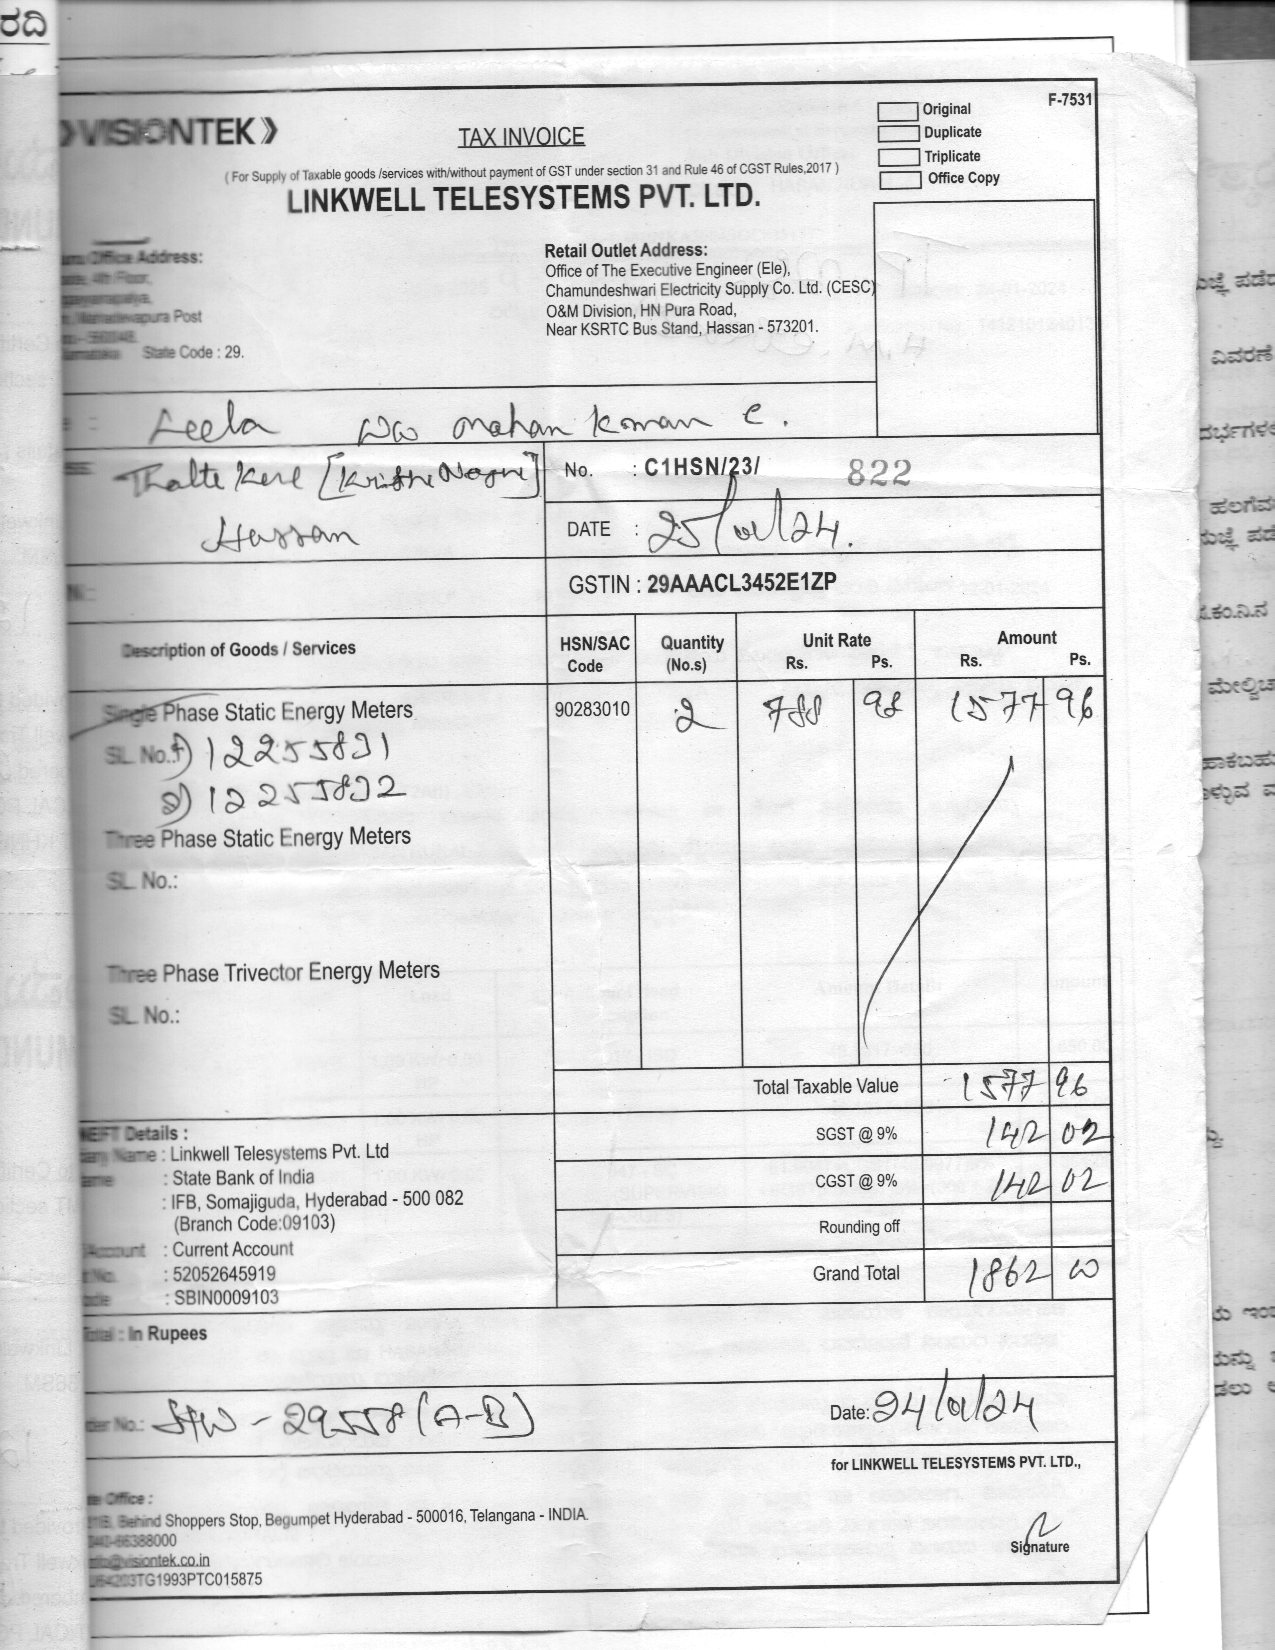 VISIONTEK
TAX INVOICE
Original
F-7531
Duplicate
Triplicate
Office Copy
( For Supply of Taxable goods /services with/without payment of GST under section 31 and Rule 46 of CGST Rules,2017 )
LINKWELL TELESYSTEMS PVT. LTD.
Office Address:
4th Floor,
Post
State Code : 29.
Retail Outlet Address:
Office of The Executive Engineer (Ele),
Chamundeshwari Electricity Supply Co. Ltd. (CESC)
O&M Division, HN Pura Road,
Near KSRTC Bus Stand, Hassan - 573201.
Leela mohan Kumar C.
Hassan
No. : C1HSN/23/ 822
DATE : 25/01/24.
GSTIN : 29AAACL3452E1ZP
Description of Goods / Services HSN/SAC Code Quantity (No.s) Unit Rate Rs. Ps. Amount Rs. Ps.
Single Phase Static Energy Meters 90283010 2 788 98 1577 96
SL. No.: 1) 12255831
2) 12255832
Three Phase Static Energy Meters
SL. No.:
Three Phase Trivector Energy Meters
SL. No.:
Total Taxable Value 1577 96
SGST @ 9% 142 02
CGST @ 9% 142 02
Rounding off
Grand Total 1862 00
NEIFT Details :
Name : Linkwell Telesystems Pvt. Ltd
: State Bank of India
: IFB, Somajiguda, Hyderabad - 500 082
(Branch Code:09103)
Account : Current Account
No. : 52052645919
: SBIN0009103
Total : In Rupees
No.: - 29558 (A-B)
Date: 24/01/24
for LINKWELL TELESYSTEMS PVT. LTD.,
Office :
Behind Shoppers Stop, Begumpet Hyderabad - 500016, Telangana - INDIA.
66388000
@visiontek.co.in
TG1993PTC015875
Signature